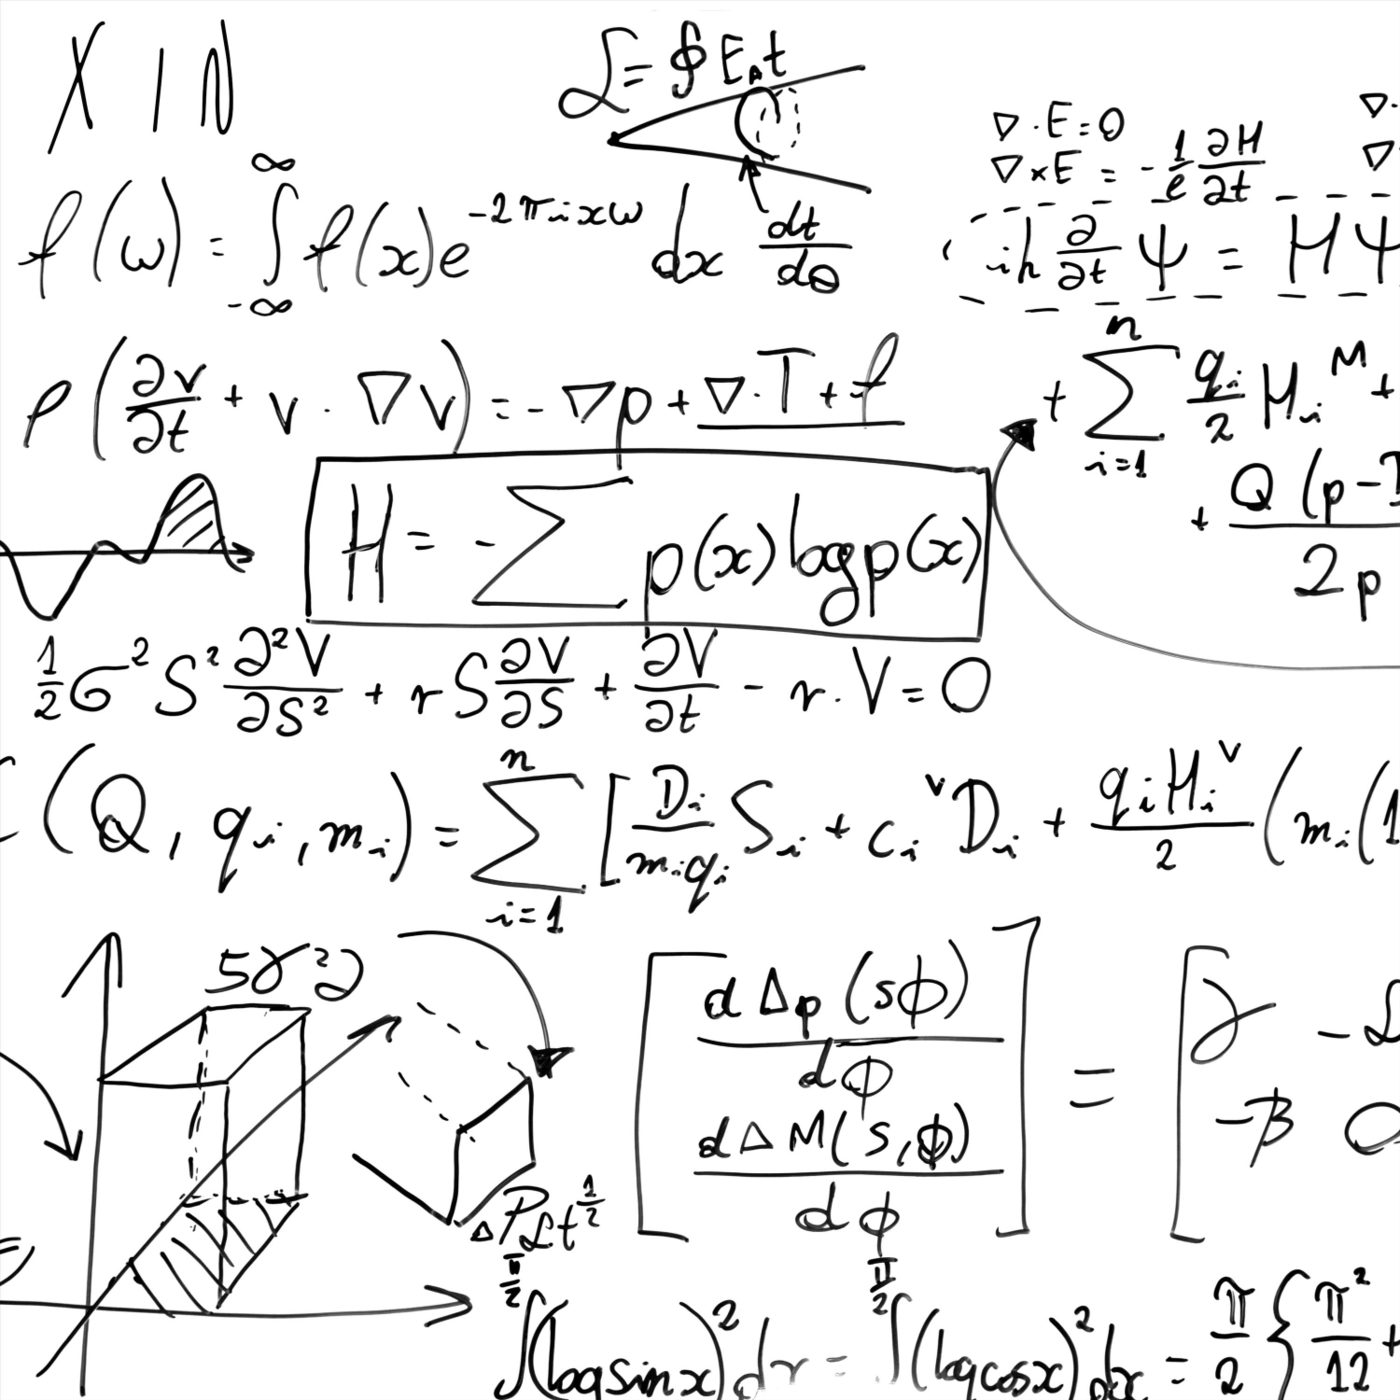 X I N
ℒ = ∮ E₀t
∇·E=0
∇×E = -1/e ∂H/∂t
∇·
∇
dt/dθ
f(ω) = ∫_{-∞}^{∞} f(x)e^{-2πixω} dx
iħ ∂/∂t Ψ = HΨ
ρ(∂v/∂t + v·∇v) = -∇p + ∇·T + f
+ ∑_{i=1}^{n} q_i/2 H_i^M +
+ Q(p-1/2p
H = -∑ p(x) log p(x)
1/2 σ² S² ∂²V/∂S² + rS ∂V/∂S + ∂V/∂t - r·V = 0
(Q, q_i, m_i) = ∑_{i=1}^{n} [D_i/m_i q_i S_i + c_i^v D_i + q_i H_i^v/2 (m_i(1
5
[dΔp(sφ)/dφ
dΔM(s,φ)/dφ] = [γ -
-β 0
t^{1/2}
∫^{π/2} (log sin x)² dx = ∫^{π/2} (log cos x)² dx = π/2 {π²/12 +